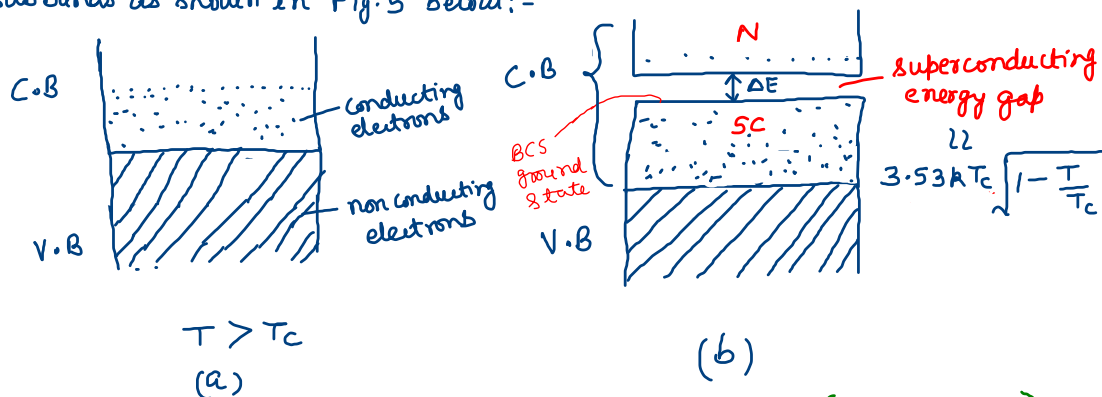 subbands as shown in Fig. 5 below:-
C.B
conducting
electrons
non conducting
electrons
V.B
T > Tc
(a)
C.B
N
ΔE
SC
superconducting
energy gap
BCS
ground
state
3.53kTc √(1 - T/Tc)
V.B
(b)